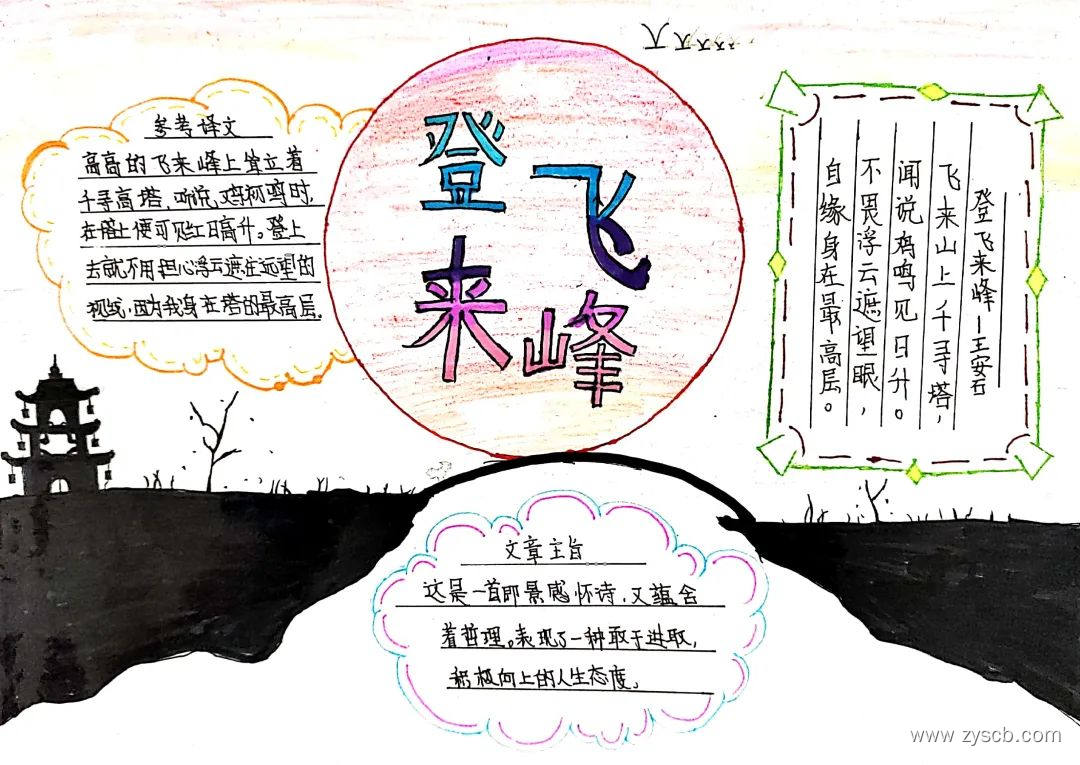 登飞
来峰
参考译文
高高的飞来峰上耸立着
千寻高塔，听说，鸡初鸣时，
在塔上便可见红日高升。登上
去就不用担心浮云遮住远望的
视线，因为我身在塔的最高层。
登飞来峰—王安石
飞来山上千寻塔，
闻说鸡鸣见日升。
不畏浮云遮望眼，
自缘身在最高层。
文章主旨
这是一首即景感怀诗，又蕴含
着哲理。表现了一种敢于进取，
积极向上的人生态度。
www.zyscb.com